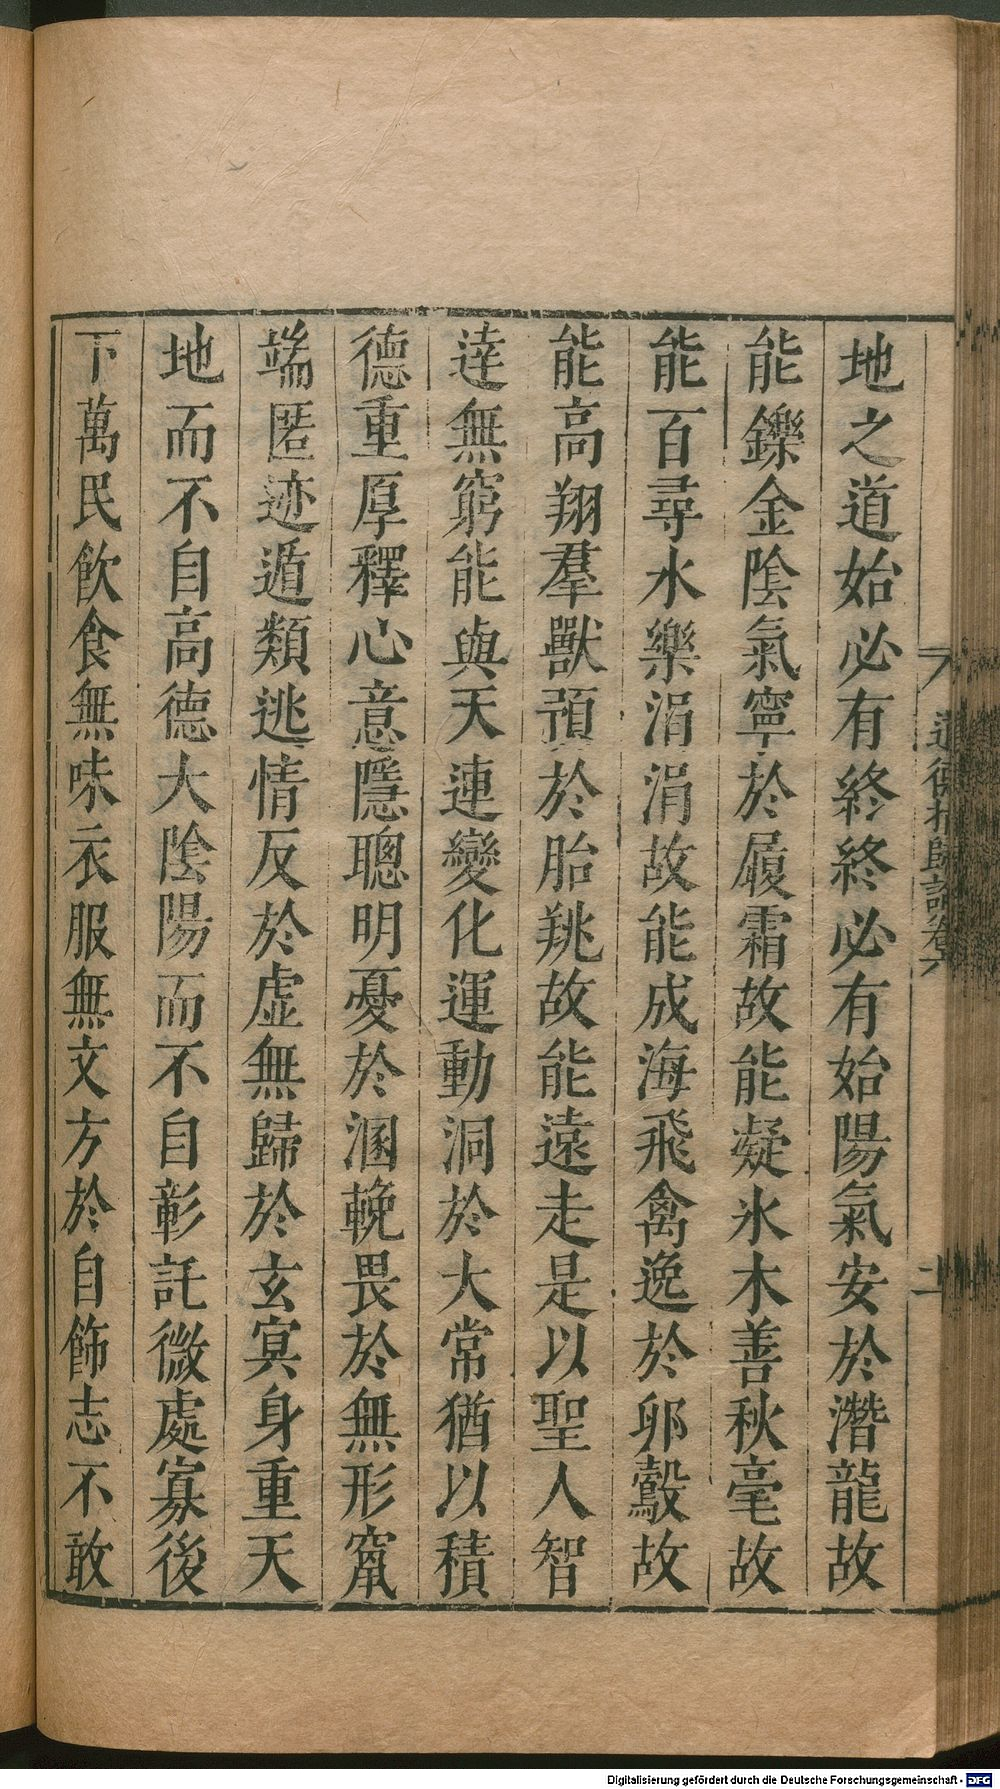 地之道始必有終終必有始陽氣安於潛龍故
能鑠金陰氣寧於履霜故能凝氷木善秋毫故
能百尋水樂涓涓故能成海飛禽逸於卵鷇故
能高翔羣獸預於胎𦍩故能遠走是以聖人智
達無窮能與天連變化運動洞於大常猶以積
德重厚釋心意隱聰明憂於溷輓畏於無形竄
端匿迹遁類逃情反於虛無歸於玄冥身重天
地而不自高德大陰陽而不自彰託微處寡後
下萬民飲食無味衣服無文方於自飾志不敢
道德指歸論卷六
二
Digitalisierung gefördert durch die Deutsche Forschungsgemeinschaft - DFG